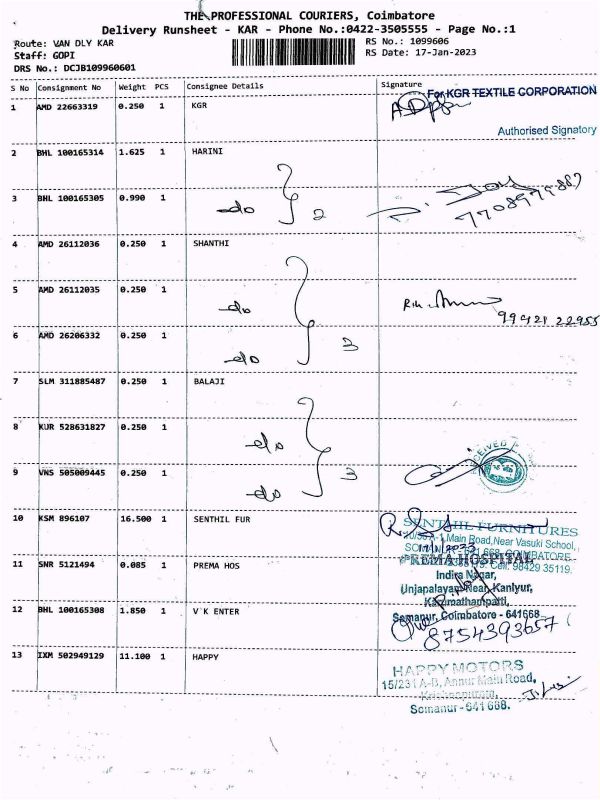 THE PROFESSIONAL COURIERS, Coimbatore
Delivery Runsheet - KAR - Phone No.:0422-3505555 - Page No.:1
Route: VAN DLY KAR
RS No.: 1099606
Staff: GOPI
RS Date: 17-Jan-2023
DRS No.: DCJB109960601
S No Consignment No Weight PCS Consignee Details Signature
For KGR TEXTILE CORPORATION
1 AMD 22663319 0.250 1 KGR
Authorised Signatory
2 BHL 100165314 1.625 1 HARINI
3 BHL 100165305 0.990 1 do 2
4 AMD 26112036 0.250 1 SHANTHI
5 AMD 26112035 0.250 1 do
99421 22955
6 AMD 26206332 0.250 1 do 3
7 SLM 311885487 0.250 1 BALAJI
8 KUR 528631827 0.250 1 do
9 VNS 505009445 0.250 1 do 3
RECEIVED
10 KSM 896107 16.500 1 SENTHIL FUR
SENTHIL FURNITURES
Main Road, Near Vasuki School,
SOMANUR - 641 668. COIMBATORE
Cell: 98429 35119.
11 SNR 5121494 0.085 1 PREMA HOS
PREMA HOSPITAL
Indira Nagar,
Unjapalayam Near, Kaniyur,
Karumathampatti,
Somanur, Coimbatore - 641668
12 BHL 100165308 1.850 1 V K ENTER
8754393657
13 IXM 502949129 11.100 1 HAPPY
HAPPY MOTORS
15/231 A-B, Annur Main Road,
Krishnapuram,
Somanur - 641 668.